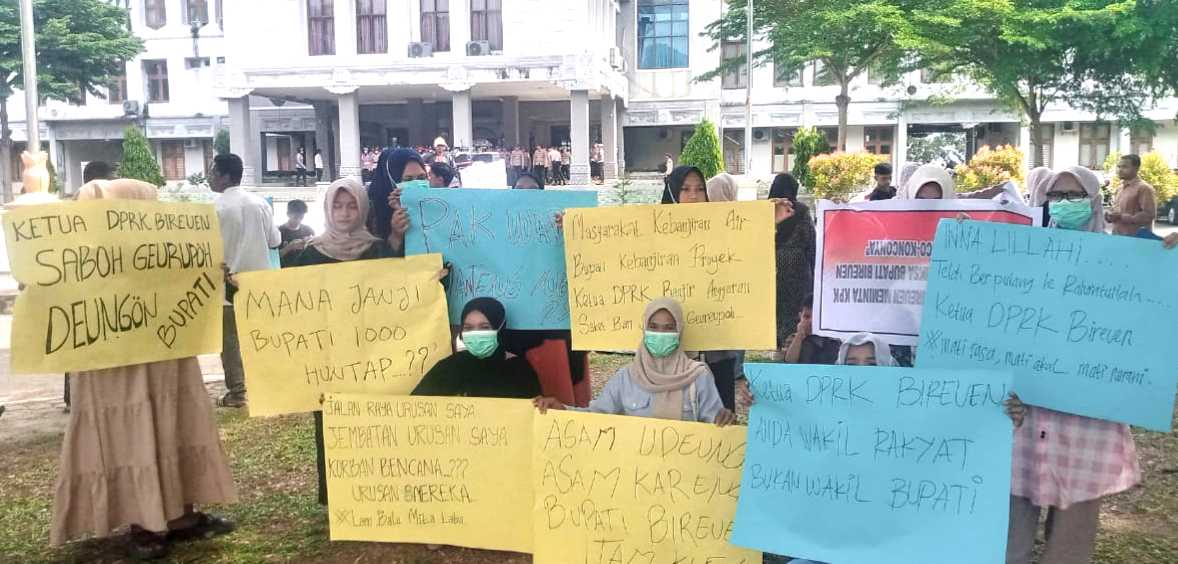 KETUA DPRK BIREUEN
SABOH GEURUPOH
DEUNGÖN
BUPATI
MANA JANJI
BUPATI 1000
HUNTAP...??
PAK
Masyarakat Kebanjiran Air
Bupai Kebanjiran Proyek
Ketua DPRK Banjir Anggaran
EUEN MEMINTA KPK
KSA BUPATI BIREUEN
CO-KONCONYA?
INNA LILLAHI.....
Telah Berpulang ke Rahmatullah....
Ketua DPRK Bireuen
*mati rasa, mati akal, mati nurani.
JALAN RAYA URUSAN SAYA
JEMBATAN URUSAN SAYA
KORBAN BENCANA..???
URUSAN MEREKA
ASAM UDEUNG
ASAM KARENG
BUPATI BIREUEN
Ketua DPRK BIREUEN
ANDA WAKIL RAKYAT
BUKAN WAKIL BUPATI